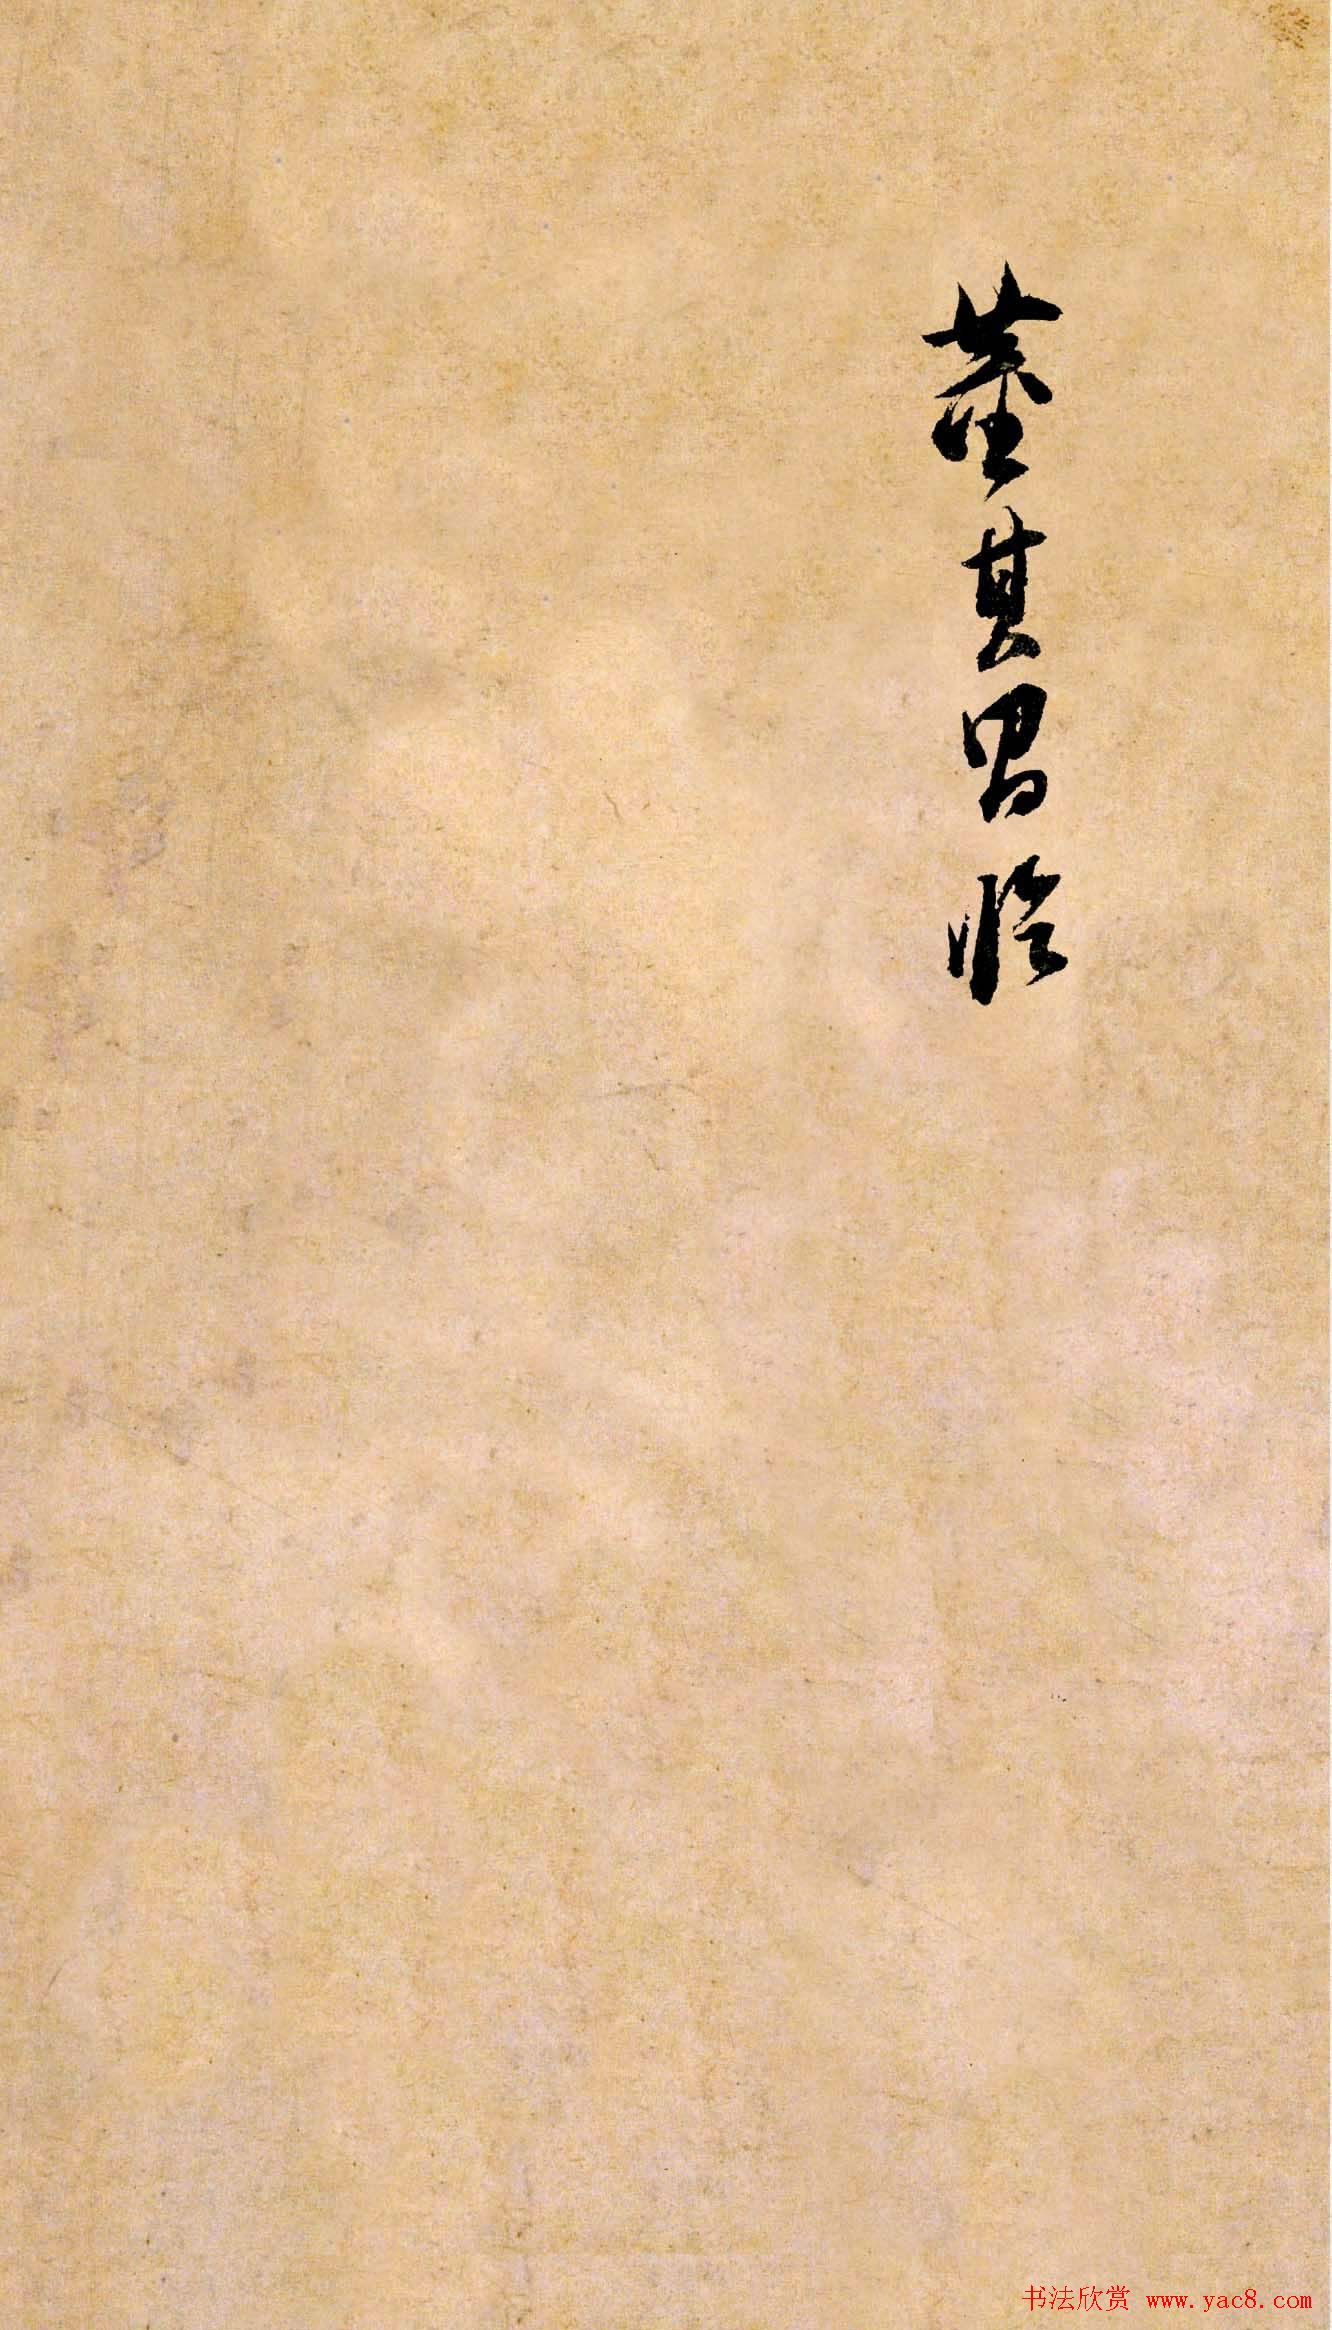 董其昌临
书法欣赏 www.yac8.com